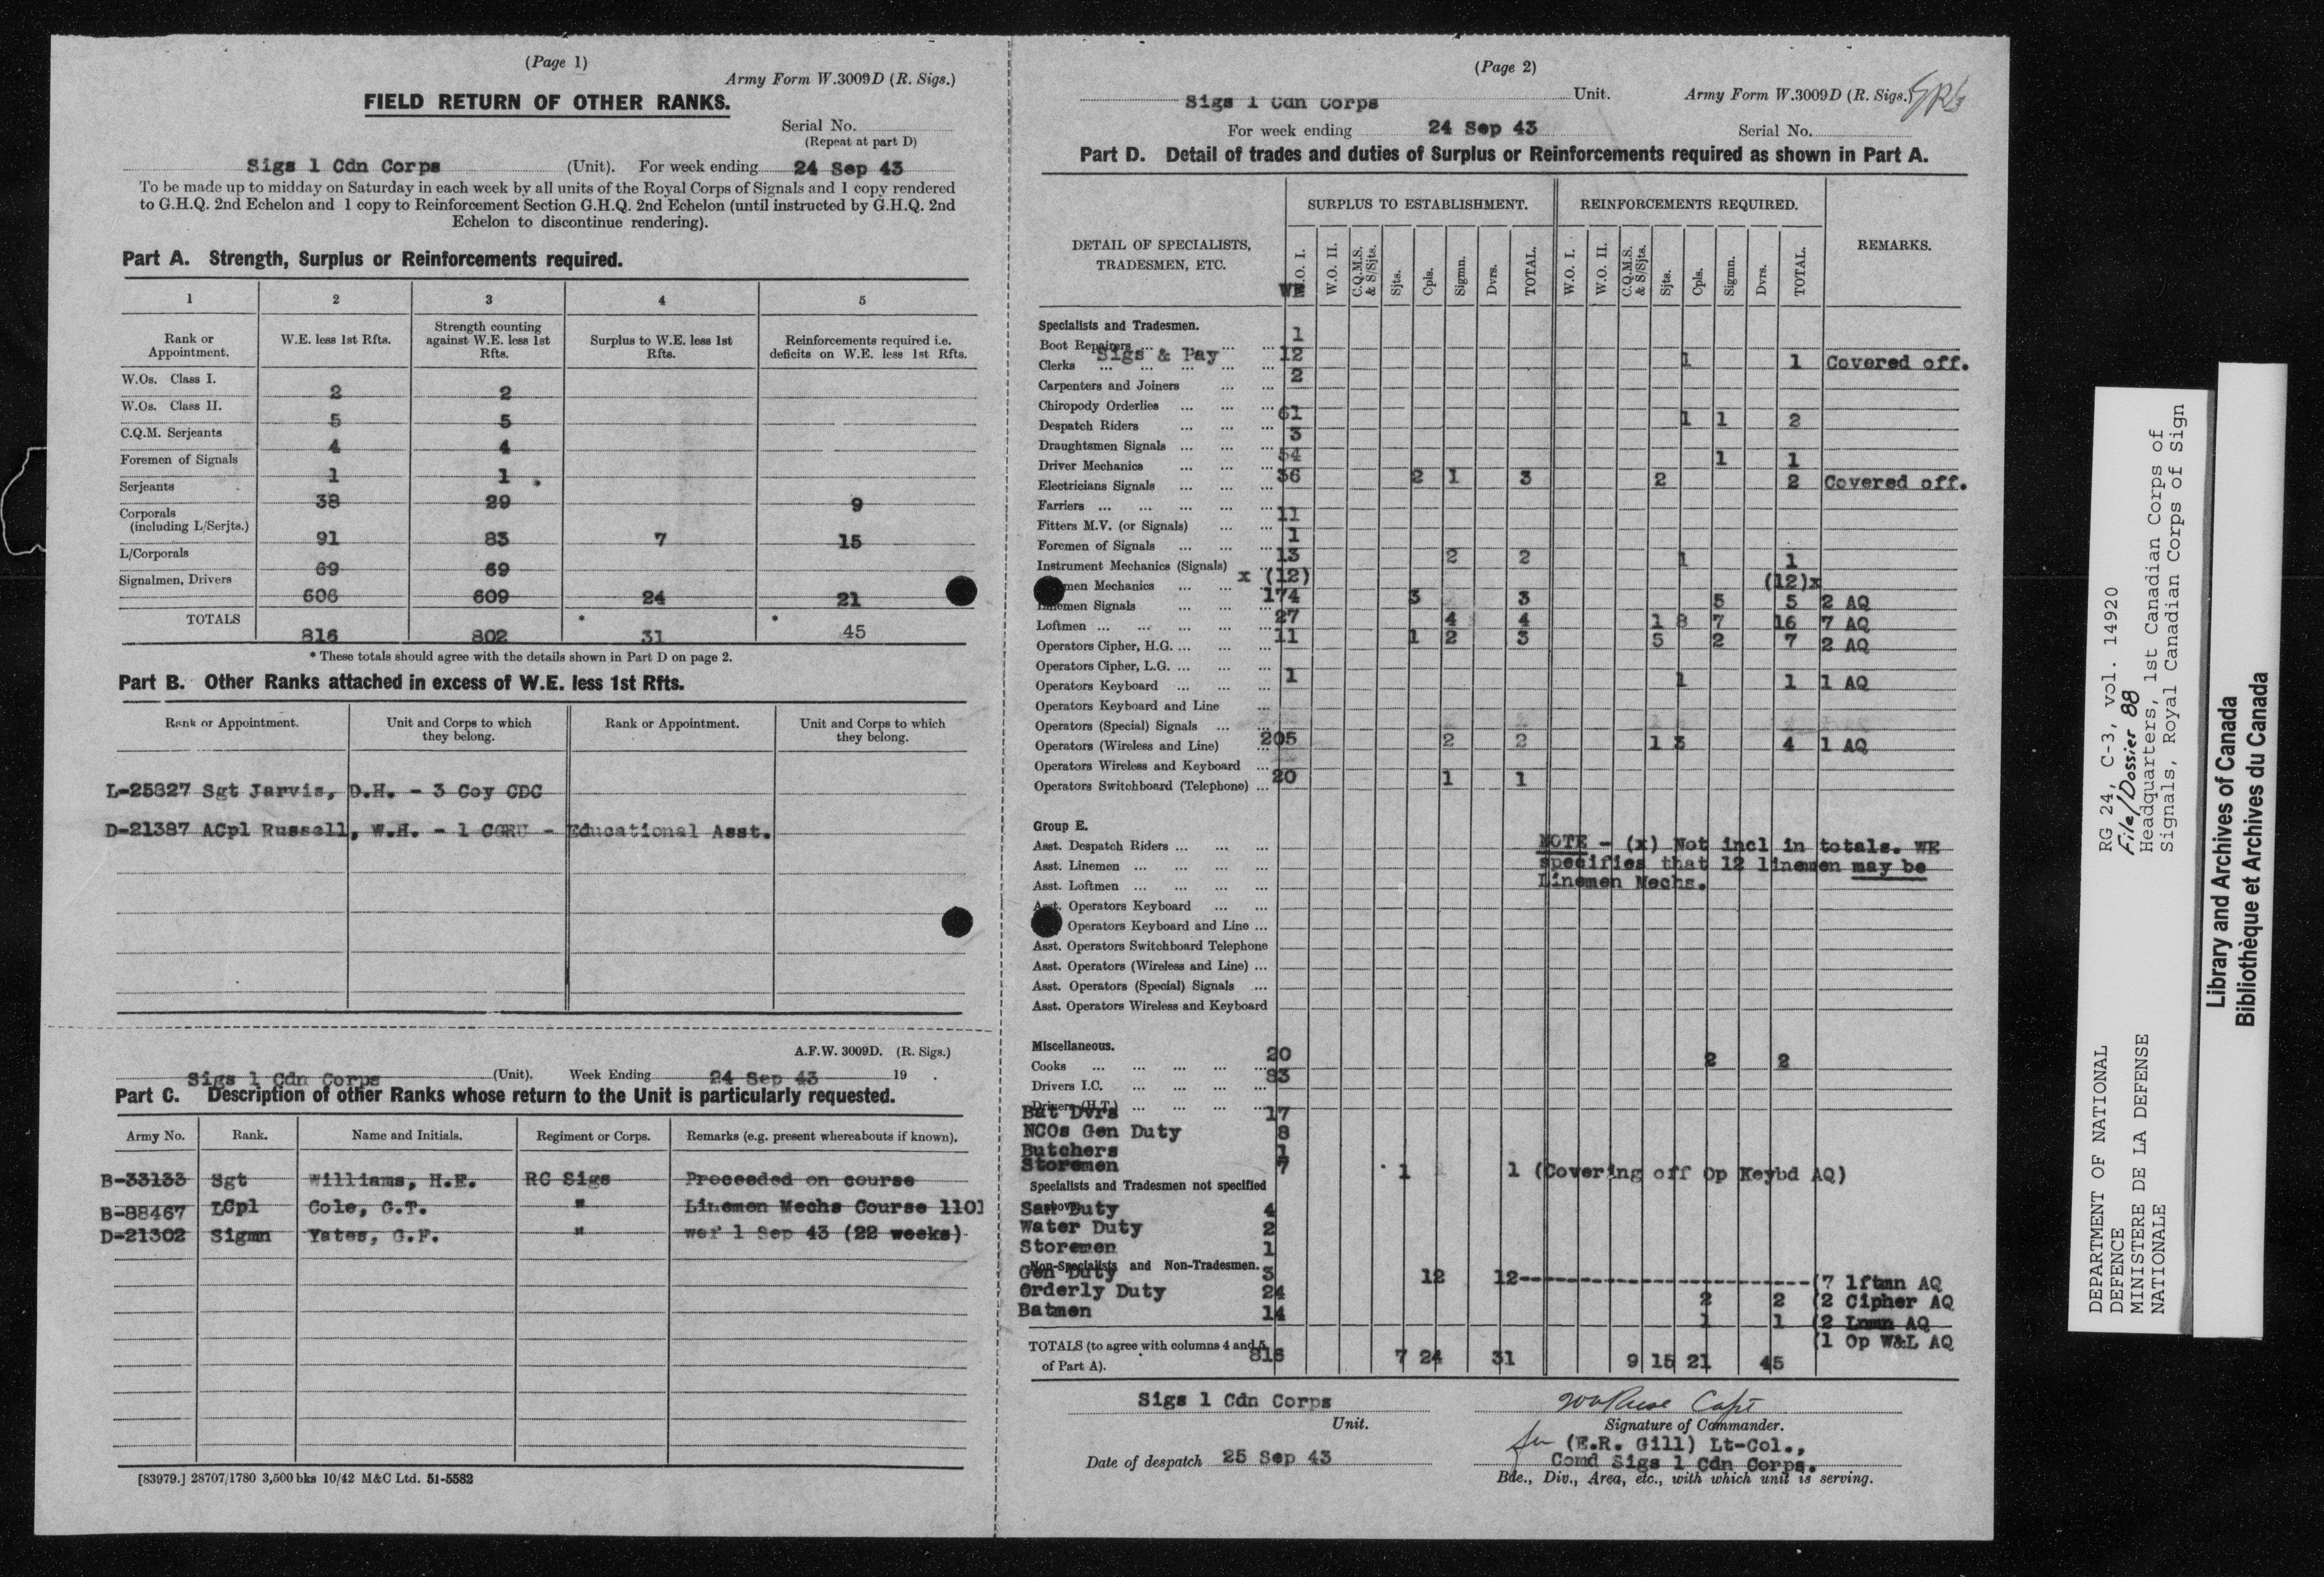 (Page 1)
Army Form W.3009D (R. Sigs.)
FIELD RETURN OF OTHER RANKS.
Serial No.
(Repeat at part D)
Sigs 1 Cdn Corps (Unit). For week ending 24 Sep 43
To be made up to midday on Saturday in each week by all units of the Royal Corps of Signals and 1 copy rendered
to G.H.Q. 2nd Echelon and 1 copy to Reinforcement Section G.H.Q. 2nd Echelon (until instructed by G.H.Q. 2nd
Echelon to discontinue rendering).
Part A. Strength, Surplus or Reinforcements required.
1 2 3 4 5
Rank or Appointment. W.E. less 1st Rfts. Strength counting against W.E. less 1st Rfts. Surplus to W.E. less 1st Rfts. Reinforcements required i.e. deficits on W.E. less 1st Rfts.
W.Os. Class I. 2 2
W.Os. Class II. 5 5
C.Q.M. Serjeants 4 4
Foremen of Signals 1 1
Serjeants 38 29 9
Corporals (including L/Serjts.) 91 83 7 15
L/Corporals 69 69
Signalmen, Drivers 606 609 24 21
TOTALS 816 802 * 31 * 45
* These totals should agree with the details shown in Part D on page 2.
Part B. Other Ranks attached in excess of W.E. less 1st Rfts.
Rank or Appointment. Unit and Corps to which they belong. Rank or Appointment. Unit and Corps to which they belong.
L-25827 Sgt Jarvis, D.H. - 3 Coy CDC
D-21387 ACpl Russell, W.H. - 1 CGRU - Educational Asst.
A.F.W. 3009D. (R. Sigs.)
Sigs 1 Cdn Corps (Unit). Week Ending 24 Sep 43 19 .
Part C. Description of other Ranks whose return to the Unit is particularly requested.
Army No. Rank. Name and Initials. Regiment or Corps. Remarks (e.g. present whereabouts if known).
B-33133 Sgt Williams, H.E. RC Sigs Proceeded on course
B-88467 LCpl Cole, G.T. " Linemen Mechs Course 1101
D-21302 Sigmn Yates, G.F. " wef 1 Sep 43 (22 weeks)
[83979.] 28707/1780 3,500 bks 10/42 M&C Ltd. 51-5582
(Page 2)
Sigs 1 Cdn Corps Unit. Army Form W.3009D (R. Sigs.)
For week ending 24 Sep 43 Serial No.
Part D. Detail of trades and duties of Surplus or Reinforcements required as shown in Part A.
DETAIL OF SPECIALISTS, TRADESMEN, ETC. SURPLUS TO ESTABLISHMENT. REINFORCEMENTS REQUIRED. REMARKS.
WE W.O. I. W.O. II. C.Q.M.S. & S/Sjts. Sjts. Cpls. Sigmn. Dvrs. TOTAL. W.O. I. W.O. II. C.Q.M.S. & S/Sjts. Sjts. Cpls. Sigmn. Dvrs. TOTAL.
Specialists and Tradesmen.
Boot Repairers 1
Clerks Sigs & Pay 12 1 1 Covered off.
Carpenters and Joiners 2
Chiropody Orderlies
Despatch Riders 61 1 1 2
Draughtsmen Signals 3
Driver Mechanics 54 1 1
Electricians Signals 36 2 1 3 2 2 Covered off.
Farriers
Fitters M.V. (or Signals) 11
Foremen of Signals 1
Instrument Mechanics (Signals) 13 2 2 1 1
men Mechanics x (12) (12)x
Linemen Signals 174 3 3 5 5 2 AQ
Loftmen 27 4 4 1 8 7 16 7 AQ
Operators Cipher, H.G. 11 1 2 3 5 2 7 2 AQ
Operators Cipher, L.G.
Operators Keyboard 1 1 1 1 AQ
Operators Keyboard and Line
Operators (Special) Signals
Operators (Wireless and Line) 205 2 2 1 3 4 1 AQ
Operators Wireless and Keyboard
Operators Switchboard (Telephone) 20 1 1
Group E.
Asst. Despatch Riders
Asst. Linemen
Asst. Loftmen
NOTE - (x) Not incl in totals. WE
specifies that 12 linemen may be
Linemen Mechs.
Asst. Operators Keyboard
Operators Keyboard and Line
Asst. Operators Switchboard Telephone
Asst. Operators (Wireless and Line)
Asst. Operators (Special) Signals
Asst. Operators Wireless and Keyboard
Miscellaneous.
Cooks 20 2 2
Drivers I.C. 83
Drivers (H.T.)
Bat Dvrs 17
NCOs Gen Duty 8
Butchers 1
Storemen 7 1 1 (Covering off Op Keybd AQ)
Specialists and Tradesmen not specified
Duty 4
Water Duty 2
Storemen 1
Non-Specialists and Non-Tradesmen.
Gen Duty 3 12 12 (7 lftmn AQ
Orderly Duty 24 2 2 (2 Cipher AQ
Batmen 14 1 1 (2 Lnmn AQ
(1 Op W&L AQ
TOTALS (to agree with columns 4 and 5 of Part A). 816 7 24 31 9 15 21 45
Sigs 1 Cdn Corps
Unit.
Capt
Signature of Commander.
for (E.R. Gill) Lt-Col.,
Comd Sigs 1 Cdn Corps.
Date of despatch 25 Sep 43
Bde., Div., Area, etc., with which unit is serving.
DEPARTMENT OF NATIONAL
DEFENCE
MINISTERE DE LA DEFENSE
NATIONALE
RG 24, C-3, vol. 14920
File/Dossier 88
Headquarters, 1st Canadian Corps of
Signals, Royal Canadian Corps of Sign
Library and Archives of Canada
Bibliothèque et Archives du Canada